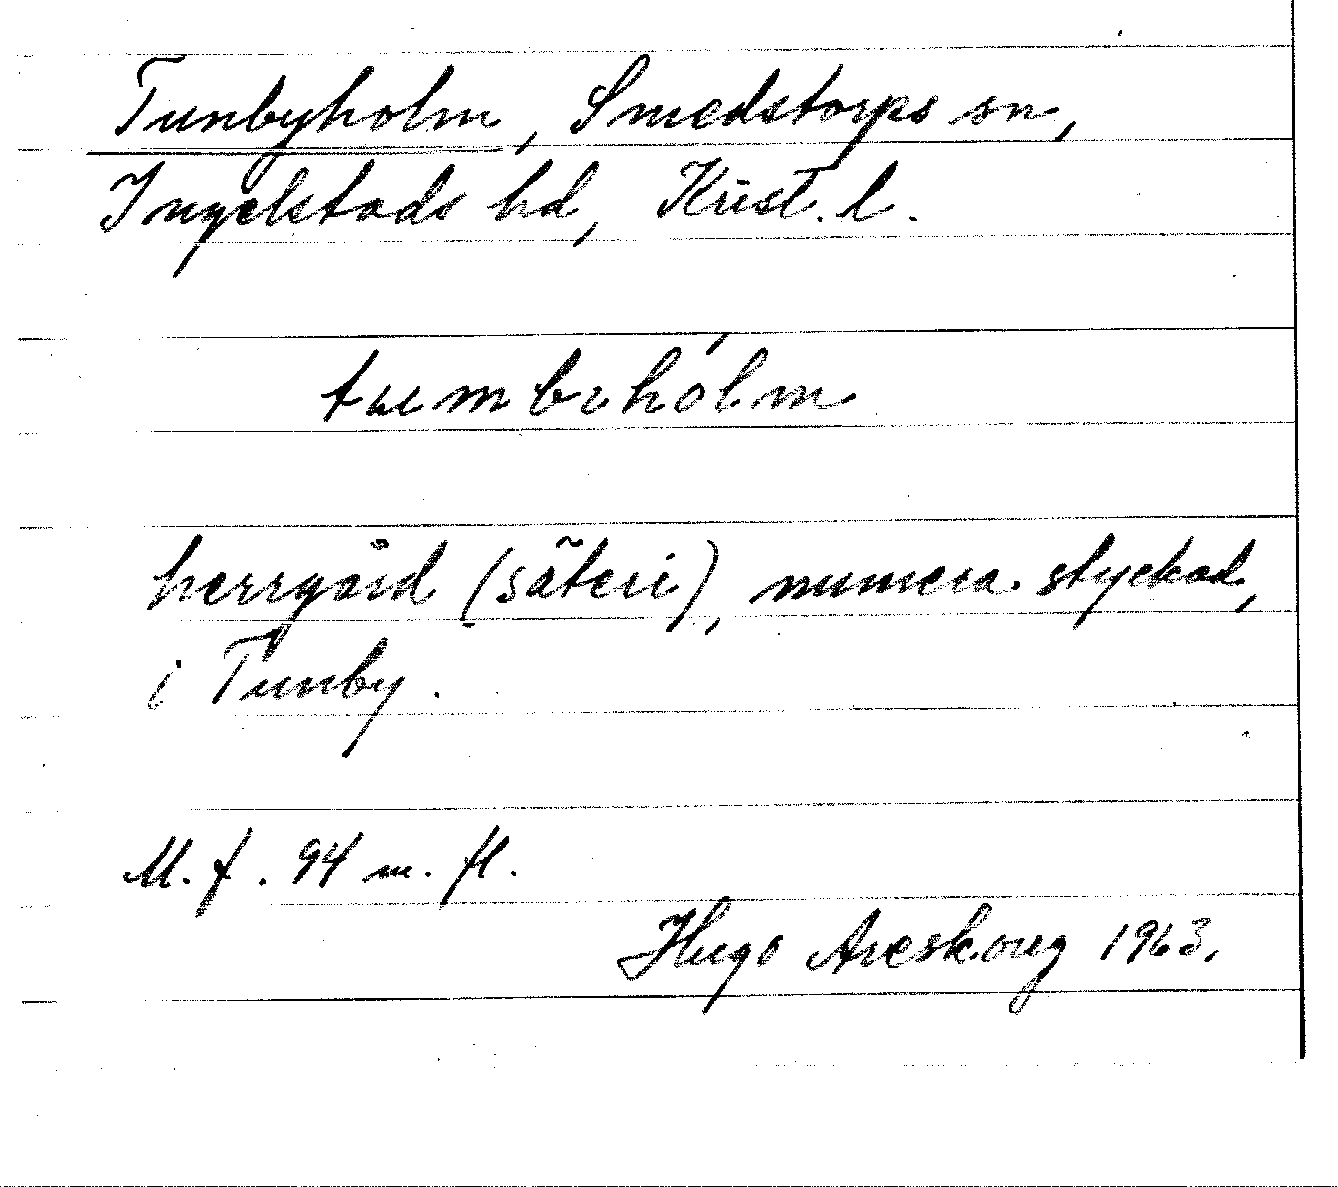 Tunbyholm, Smedstorps sn,
Ingelstads hd, Krist. l.
herrgård (säteri), numera styckad,
i Tunby.
M. f. 94 m. fl.
Hugo Areskoug 1963.